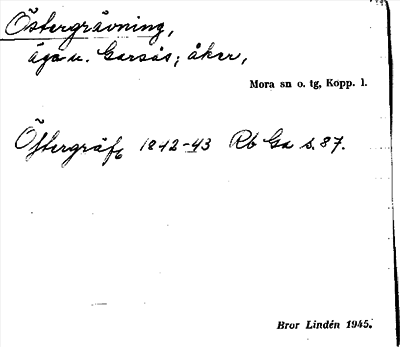 Östergrävning,
äga u. Garsås; åker,
Mora sn o. tg, Kopp. l.
Östergräf 1842-43 Rb Ga s. 87.
Bror Lindén 1945.